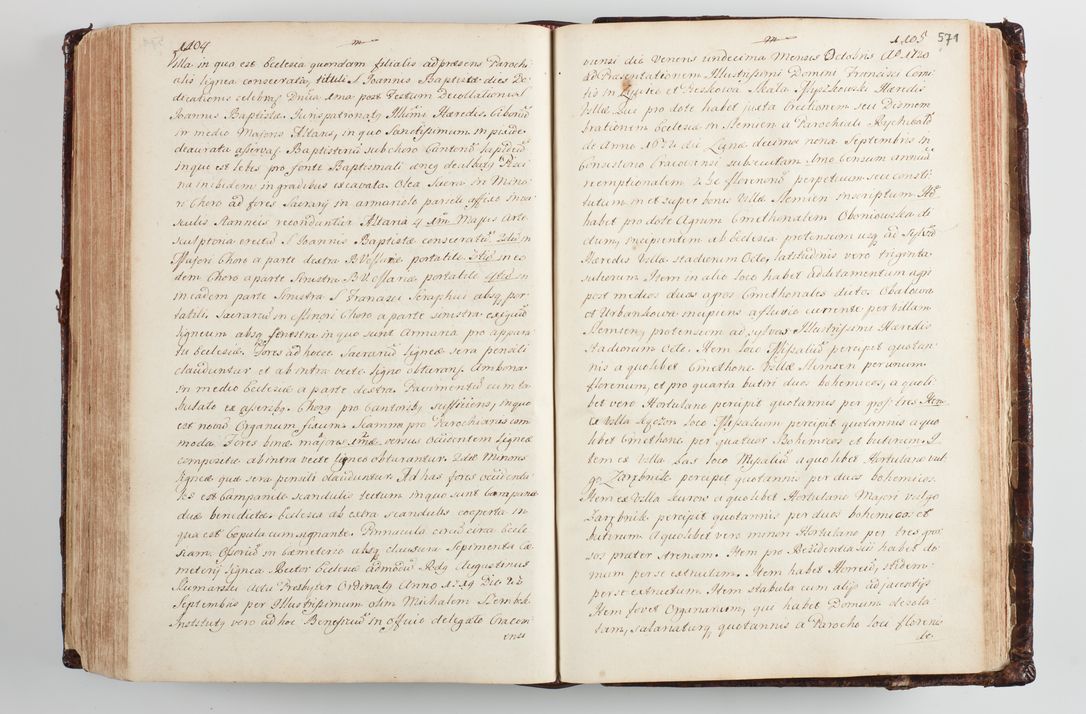 1104
Villa in qua est Ecclesia quondam filialis ad præsens Parochi-
alis lignea consecrata, tituli S. Joannis Baptistæ dies De-
dicationis celebris Dnica 1ma post Festum Decollationis S.
Joannis Baptistæ. Jurispatronatq Illmi Hæredis. Ciborium
in medio Majoris Altaris, in quo Sanctissimum in pixide
deaurata asservat. Baptisterium sub choro Cantorum lapideum
inque est lebes pro fonte Baptismali æneq dealbatq Pisci-
na ibidem in gradibus excavata. Olea Sacra in Mino-
ri Choro ad fores Sacrarij in armariolo parieti affixo in va-
sculis stanneis reconduntur Altaria 4 1um Majus Arte
sculptoria erectum S. Joannis Baptistæ consecratum. 2dum in
Majori Choro a parte dextra B. V. Mariæ portatile 3tium in eo-
dem Choro a parte sinistra B. V. Mariæ portatile 4tum in
in eadem parte sinistra S. Francisci Seraphici absq por-
tatili. Sacrarium in Minori Choro a parte sinistra exiguum
ligneum absq fenestra in quo sunt Armaria pro appara-
tu Ecclesiæ. Fores ad hocce Sacrarium ligneæ sera pensili
clauduntur et ab intra vecte ligno obturant. Ambona
in medio Ecclesiæ a parte dextra. Pavimentum cum ta-
bulato ex asseribq. Chorq pro Cantoribq sufficiens, in quo
est novum Organum fixum. Scamna pro Parochianis com-
moda. Fores binæ majores 1mæ versus occidentem ligneæ
compositæ ab intra vecte ligneo obturantur. 2dæ Minores
ligneæ quæ sera pensili clauduntur. Ad has fores occidenta-
les est Campanile scandulis tectum in quo sunt Campanæ
duæ benedictæ. Ecclesia ab extra scandulis cooperta in
qua est Copula cum signante. Pinnacula circum circa Eccle-
siam. Ossorium in Cæmeterio absq clausura. Sepimenta Cæ-
meterij lignea. Rector Ecclesiæ admodum Rdq Augustinus
actu Presbyter Ordinatq Anno 1719 Die 23
Septembris per Illustrissimum olim Michalem Szembek
Institutq vero ad hoc Beneficium in Officio delegato Cracovi-
ensi
1105
571
viensi die Veneris undecima Mensis Octobris Ao 1720
ad Præsentationem Illustrissimi Domini Francisci Comi-
tis in Żywiec et Pieskowa Skała Wielopolski Hæredis
Villæ. Qui pro dote habet juxta Erectionem seu Dismem-
brationem Ecclesiæ in Slemien a Parochiali Rychwald
de anno 1674 die Lunæ decima nona Septembris in
Consistorio Cracoviensi subsecutam. 1mo Censum annuum
reemptionalem florenorum perpetuum seu consti-
tutum in et super bonis Villæ Slemien inscriptum. Itē
habet pro dote Agrum Cmethonalem Oboniowska di-
ctum, incipientem ab Ecclesia protensum usq ad sylvam
Hæredis Villæ stadiorum Octo, latitudinis vero triginta
sulcorum. Item in alio loco habet addetamentum agri
post medios duos agros Cmethonales dictos Obalowa
et Urbankowa incipiens a fluvio currente per villam
Slemien, protensum ad sylvas Illustrissimi Hæredis
stadiorum Octo. Item loco Missalium percipit quotan-
nis a quolibet Cmethone Villæ Slemien per unum
florenum, et pro quarta butiri duos bohemicos, a quoli-
bet vero Hortulano percipit quotannis per gros: tres Item
ex Villa loco Missalium percipit quotannis a quo-
libet Cmethone per quatuor Bohemicos et butirum. I-
tem ex Villa Las loco Missalium a quolibet Hortulano vul-
go Zarębnik percipit quotannis per duos bohemicos.
Item ex Villa Kurow a quolibet Hortulano Majori vulgo
Zarębnik percipit quotannis per duos bohemicos et
butirum. A quolibet vero minori Hortulano per tres gros-
sos præter strenam. Item pro Residentia sui habet do-
mum per se extructum. Item habet Horreum, itidem
per se extructum. Item stabula cum alijs adjacentijs
Item fovet Organarium, qui habet Domum desola-
tam, salariaturq quotannis a Parocho loci florenis
de: